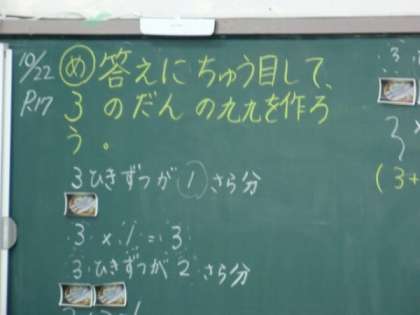 10/22
P.17
め 答えにちゅう目して、
3のだんの九九を作ろ
う。
3びきずつが 1 さら分
3 × 1 = 3
3びきずつが 2 さら分
3
3
(3+